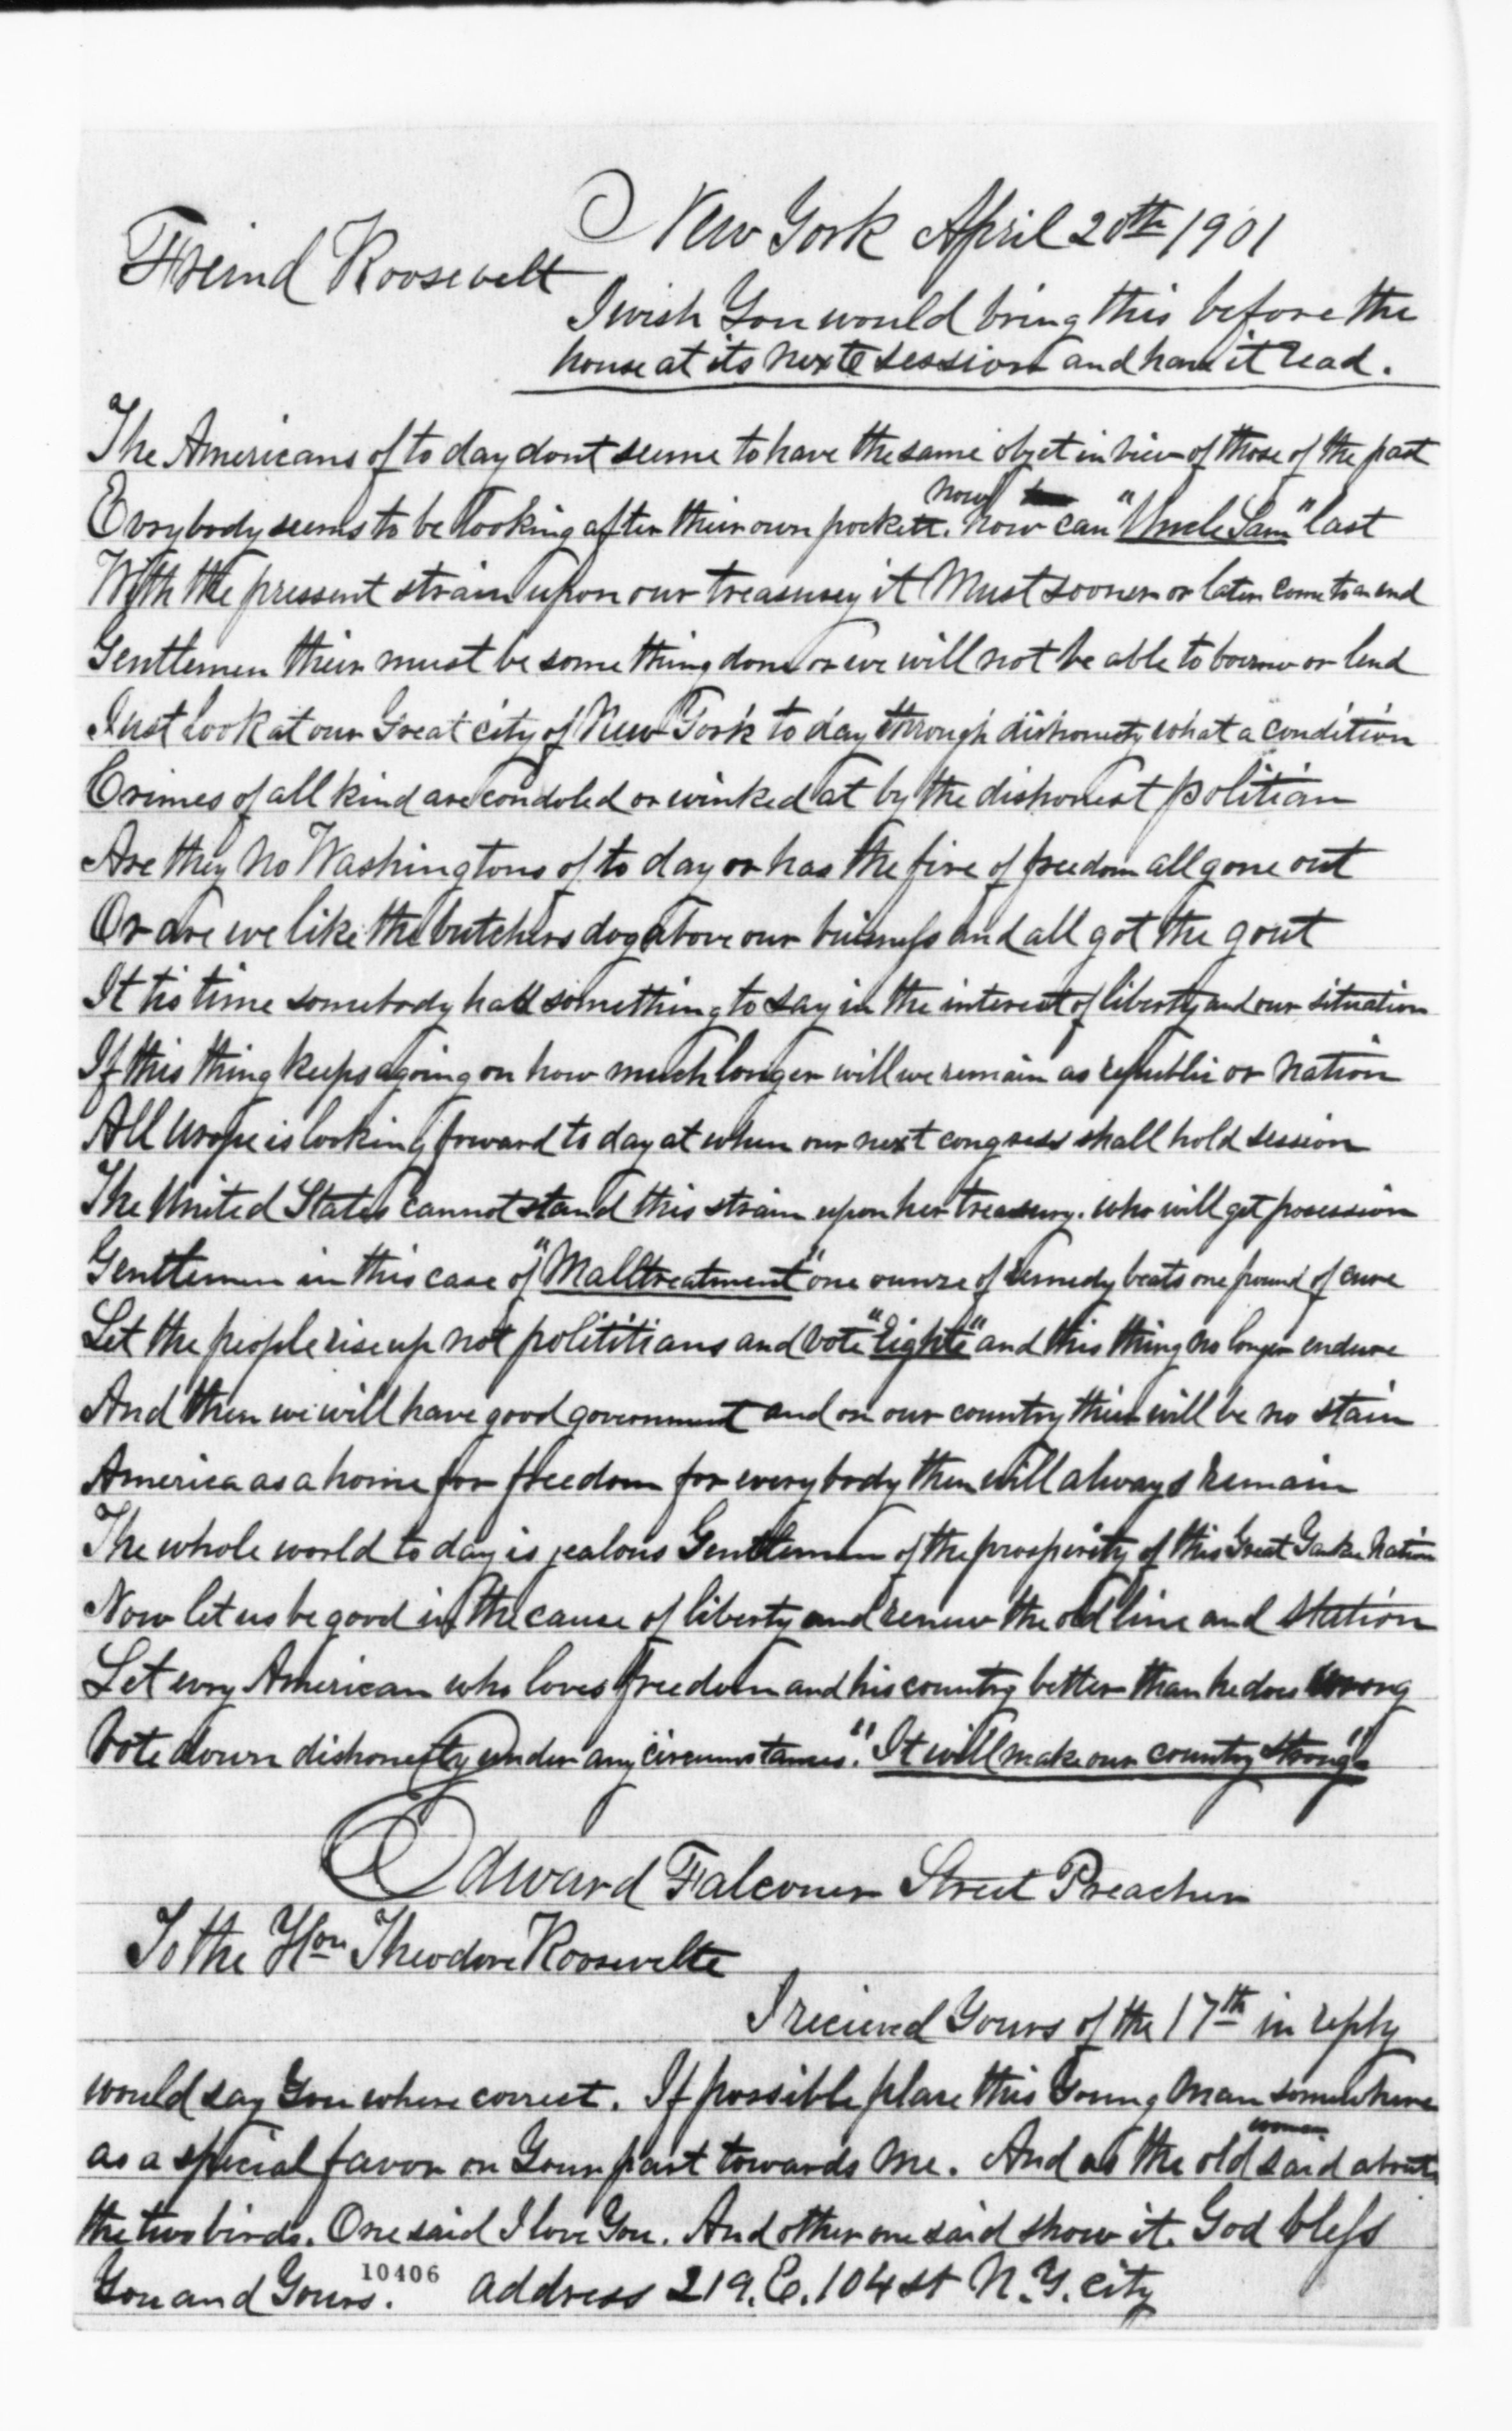 New York April 20th 1901
Freind Roosevelt
I wish You would bring this before the
house at its next session and have it read.
The Americans of to day dont seeme to have the same objet in view of those of the past
now
Evrybody seems to be looking after their own pockett. how can "Uncle Sam" last
With the pressent strain upon our treasurey it Must sooner or later come to an end
Gentlemen their must be some thing done or we will not be able to borrow or lend
Just look at our Great city of New York to day through dishonesty what a condition
Crimes of all kind are condoled or winked at by the dishonest politian
Are they no Washingtons of to day or has the fire of freedom all gone out
Or are we like the butchers dog above our buisness and all got the gout
It tis time somebody had something to say in the interest of liberty and our situation
If this thing keeps agoing on how much longer will we remain as republic or nation
All Urope is looking forward to day at when our next congress shall hold session
The United States cannot stand this strain upon her treasury. who will get posession
Gentlemen in this case of "Malltreatment" one ounze of remedy beats one pound of cure
Let the people rise up not polititians and vote "rights" and this thing no longer endure
And then we will have good government and on our country their will be no stain
America as a home for freedom for everybody then will always remain
The whole world to day is jealous Gentlemen of the prosperity of this Great Yankee Nation
Now let us be good in the cause of liberty and renew the old line and station
Let evry American who loves freedom and his country better than he does wrong
Vote down dishonesty under any circumstances." "It will make our country strong"
Edward Falconer Street Preacher
To the Hon Theodore Roosevelte
I recieved Yours of the 17th in reply
would say You where correct. If possible place this Young Man somewhere
women
as a special favor on Your part towards Me. And as the old said about
the two birds. One said I love You. And other one said show it. God bless
You and Yours. 10406 address 219. E. 104 st N.Y. city